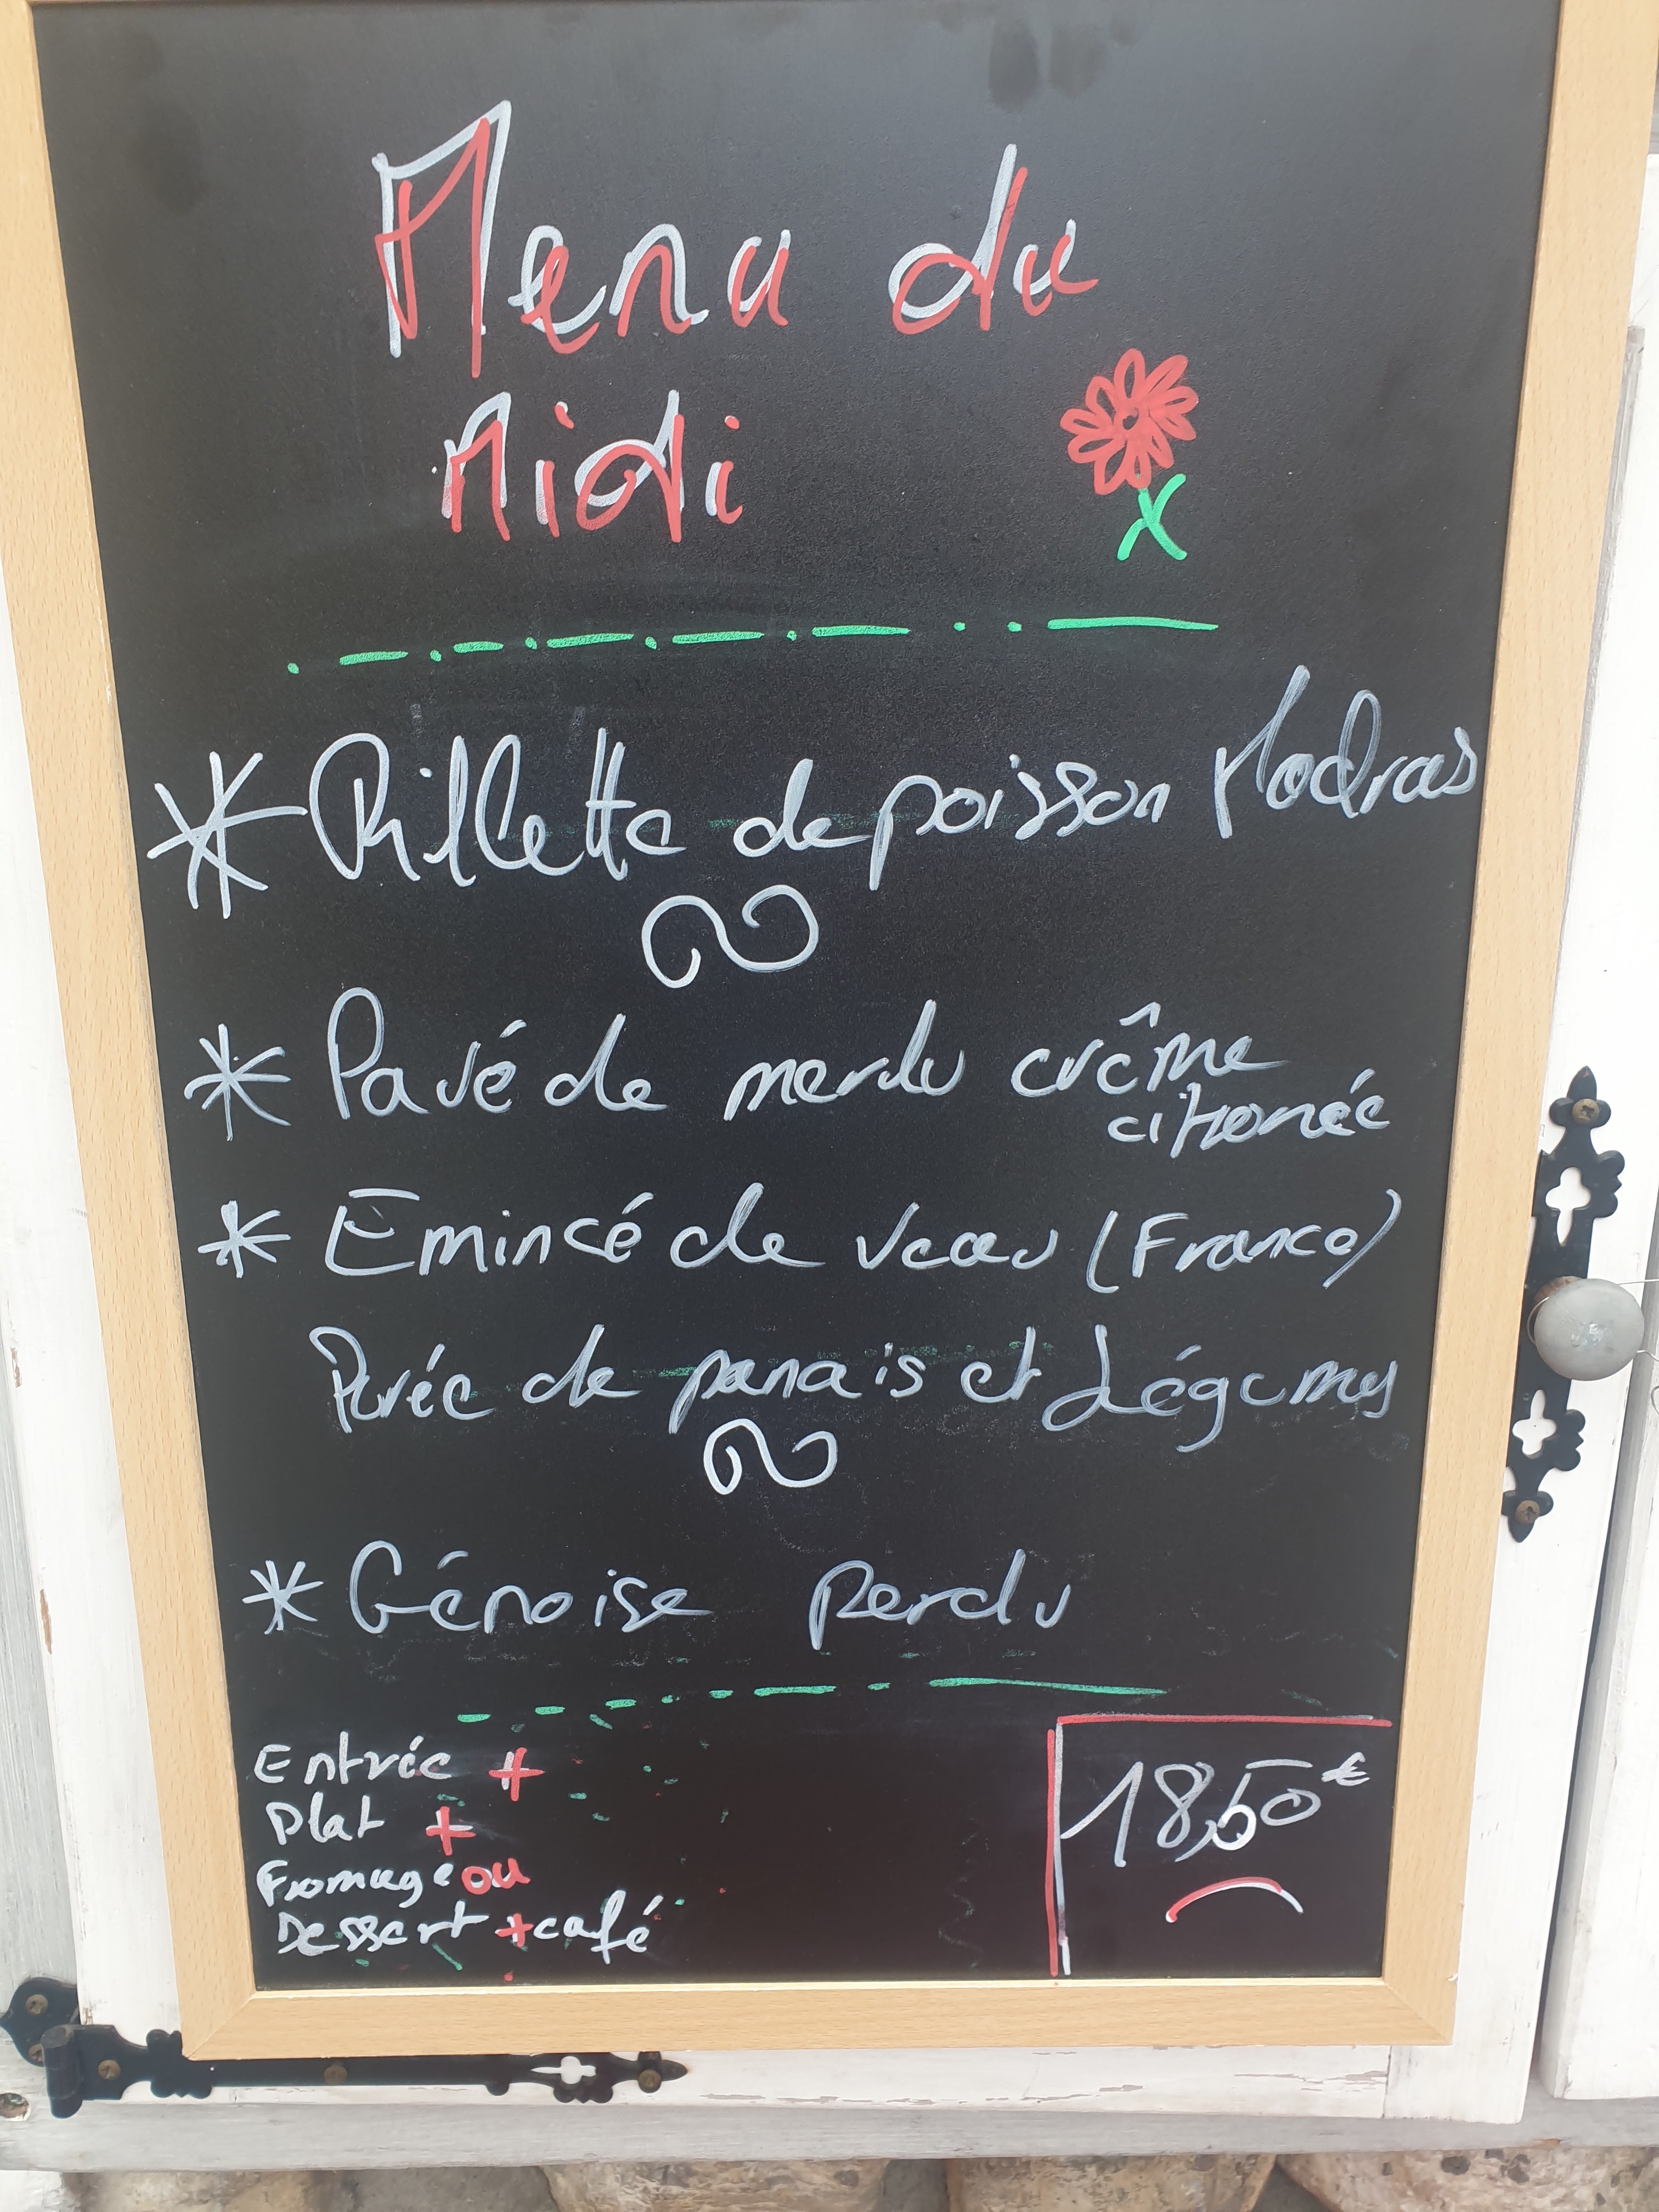 Menu du
Midi
* Rillette de poisson Madras
* Pavé de merlu crême
citronée
* Emincé de veau (France)
Purée de panais et Légumes
* Génoise perdu
Entrée +
Plat +
Fromage ou
Dessert + café
18,50€